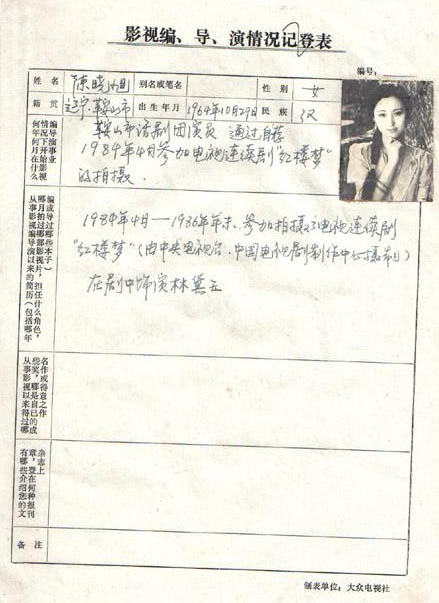 影视编、导、演情况记登表
编号：
姓名 陈晓旭 别名或笔名 性别 女
籍贯 辽宁鞍山市 出生年月 1964年10月29日 民族 汉
何年何月在什么
情况下开始影视
编导演事业
鞍山市话剧团演员 通过自荐
1984年4月参加电视连续剧“红楼梦”
的拍摄.
从事影视编导演以来的简历（包括哪年
哪月拍过哪部影视片，担任什么角色，
编或导过哪些本子）
1984年4月—1986年年末. 参加拍摄了电视连续剧
“红楼梦”（由中央电视台、中国电视剧制作中心摄制）
在剧中饰演林黛玉
从事影视以来得过哪
些奖，哪是自己的成
名作或得意之作
有哪些介绍您的文
章，登在何种报刊
杂志上
备注
制表单位：大众电视社